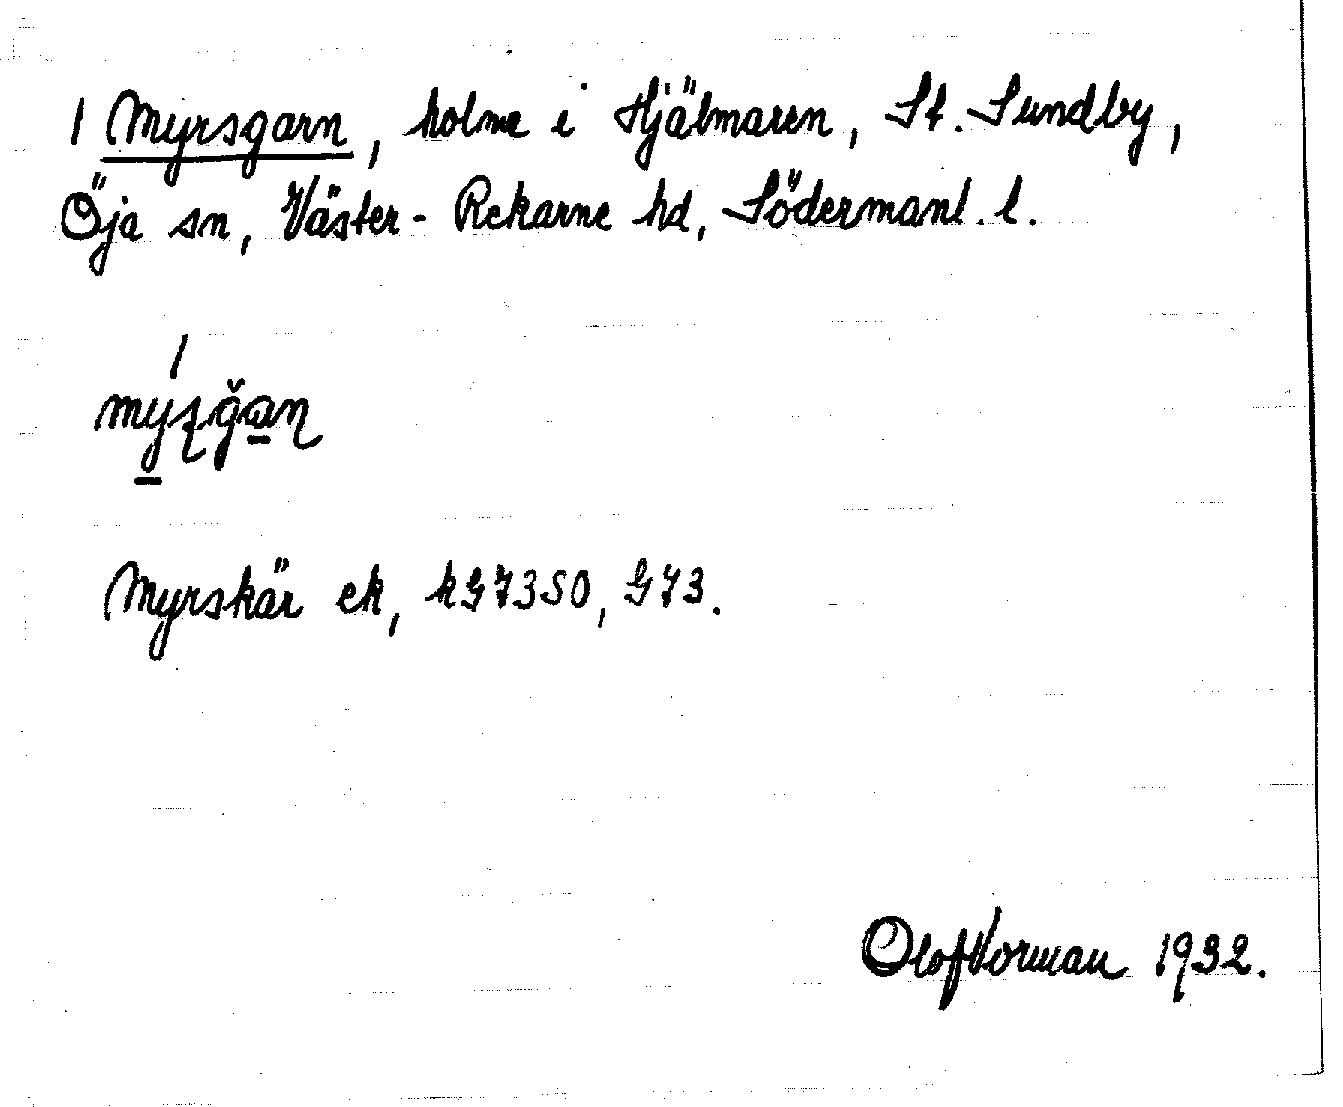 1 Myrsgarn, holme i Hjälmaren, St. Sundby,
Öja sn, Väster-Rekarne hd, Södermanl. l.
Myrskär ek, kG7350, G73.
Olof Vorman 1932.